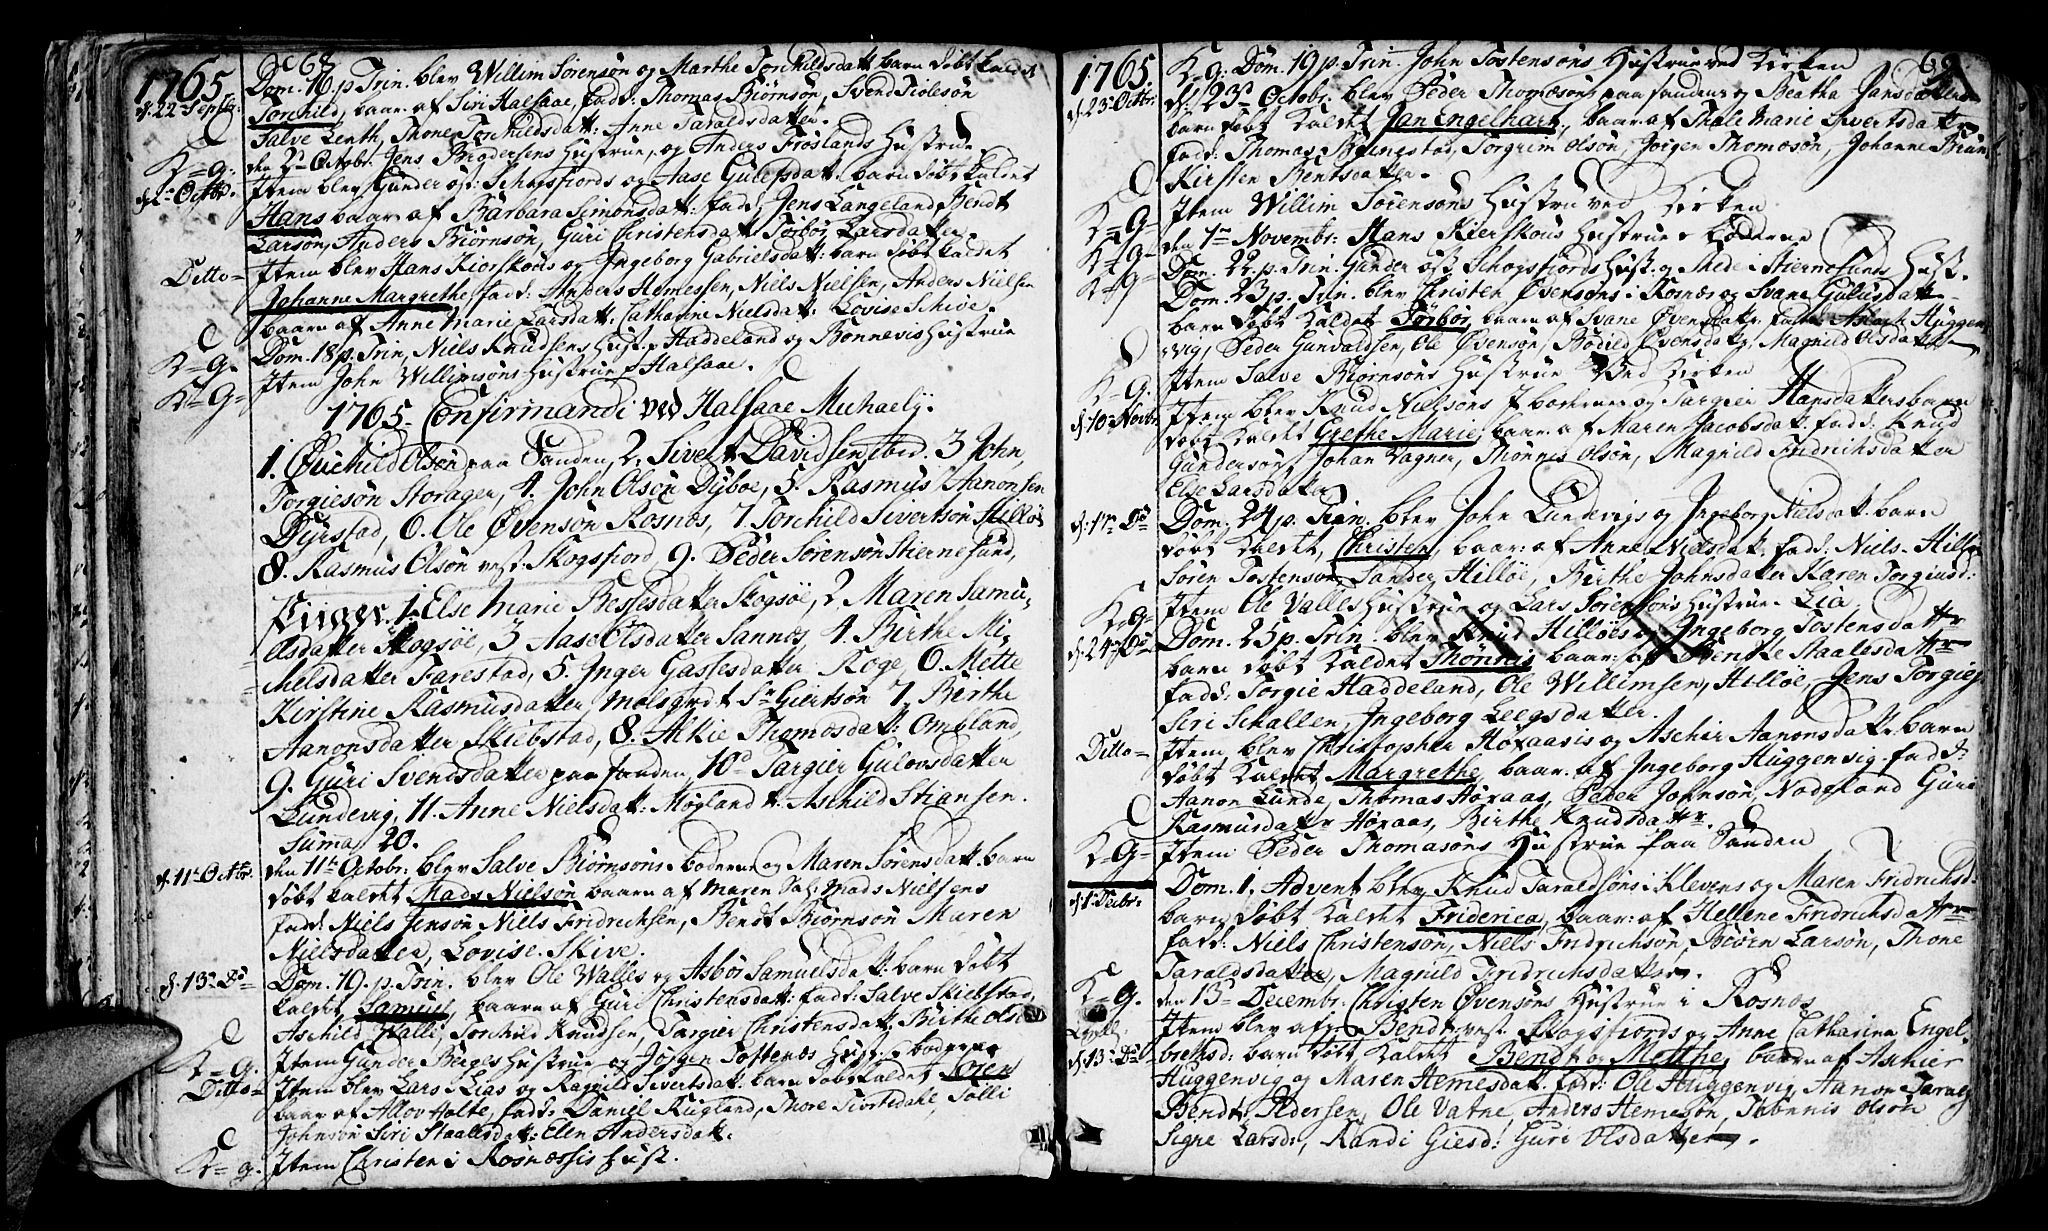 1765 68
Dom. 16 p. Trin. blev Willim Sørensøn og Marthe Torchildsdatt: barn døbt kaldet
d. 22 Septbr: Torchild, baar: af Siri Halsaae, fadd: Thomas Biørnsøn, Svend Tiølesøn
Salve Lenth, Thone Torchildsdatt: Anne Taraldsdatter.
K=g: den 2den Octobr. Jens Brodersens Hustrue, og Anders Frøslands Hustrue
d. 2. Octbr. Item blev Gunder øst: Schogsfiords og Aase Gulefsdatt: barn døbt kaldet
Hans baar: af Barbara Simonsdatt: fadd: Jens Langeland, Bendt
Larsøn, Anders Biørnsøn, Guri Christensdatt: Torbor Larsdatter.
Ditto= Item blev Hans Kiørskous og Ingeborg Gabrielsdatt: barn døbt kaldet
Johanne Margrethe, fadd: Anders Hemessen, Niels Nielsen, Anders Nielsen
baaren af Anne Marie Larsdatt: Catharine Nielsdatt: Lovise Schive.
K=g. Dom. 18 p. Trin, Niels Knudsens Hust. Haddeland og Bønnevis Hustrue
K=G= Item John Willimsøns Hustrue Halsaae.
1765. Confirmandi ved Halsaae Michaely.
1. Øuchild Olsøn paa Sanden, 2. Sivert Davidsen ibid. 3 John
Torgiesøn Storager, 4. John Olsøn Dyboe, 5. Rasmus Aanonsen
Dyrstad, 6. Ole Øvensøn Rosnes, 7. Torchild Sivertsøn Hilløe
8. Rasmus Olsøn vest. Skogsfiord, 9. Peder Sørensøn Stiernesund,
Piiger. 1. Else Marie Bessesdatter Skogsøe, 2 Maren Samu-
elsdatter Skogsøe, 3 Aase Olsdatter Sannes, 4. Birthe Mi-
chelsdatter Farestad, 5. Inger Gassesdatter Koge, 6. Mette
Kirstine Rasmusdatter, 7. Birthe
Aanonsdatter Skiebstad, 8. Alkie Thomæsdatt: Omeland,
9. Guri Svenisdatter paa Sanden, 10. Targier Gulovsdatter
Lundevig, 11. Anne Nielsdatt: Møgland Aschild Stiansen.
Summa 20.
d. 11. Octbr. den 11te Octobr: blev Salve Biørnsøns i boderne og Maren Sørensdatt: barn
døbt kaldet Mads Nielsøn baaren af Maren Sal: Mads Nielsens
fadd: Niels Jensøn Niels Fridrichsen, Bendt Biørnsøn Maren
Nielsdatter, Lovise Skive.
d. 13. Do Dom. 19. p. Trin. blev Ole Walles og Asbør Samuelsdatt: barn døbt
kaldet Samuel, baaren af Guri Christensdatt: fadd: Salve Skiebstad,
Aschild Walli, Torchild Knudsen, Targier Christensdatt: Birthe Olsd
K=g. Item Gunder Berges Hustrue og Jørgen Tostenes Hust: boderne
Ditto= Item blev Lars i Lias og Ragnild Sivertsdatt: barn døbt kaldet Søren
baar af Allov Holte, fadd: Daniel Rugland, Thore Tiortedahl, Tølli
Johnsøn Siri Staalesdatt: Elen Andersdatt.
K=g. Item Christen i Rosnæssis Hust.
1765. 69
K=g: Dom. 19 p. Trin. John Tostensøns Hustrue ved Kirken
d. 23 Octbr: d: 23de Octobr. blev Peder Thomæsøns paa Sanden og Beatha Jansdatters
barn døbt kaldet Jan Engelhart, baar: af Thale Marie Sivertsdatter
fadd: Thomas Svingstad, Torgrim Olsøn, Jørgen Thomæsøn, Johanne Bruun
Kirsten Bentsdatter.
K=G= Item Willim Sørensøns Hustru ved Kirken
K=g= den 1ste Novembr: Hans Kierskous Hustrue boderne
K=g= Dom. 22. p. Trin. Gunder øst Schogsfiords Hust. og Mede i Stiernesunds Hust.
Dom. 23 p. Trin. blev Christen Øvensøns i Rosnæs og Svane Gulufsdatt
barn døbt kaldet Torbor, baaren af Svane Øvensdatter, fadd: Aslach Huggen-
vig, Peder Gunvaldsen, Ole Øvensøn, Bodild Øvensdatter, Magnild Olsdatter
K=g. Item Salve Biørnsøns Hustrue Ved Kirken
d. 10 Novbr. Item blev Knud Nielsøns i boderne og Targier Hansdatters barn
døbt kaldet Grethe Marie, baar: af Maren Jacobsdatt. fadd: Knud
Gundersøn, Johan Vagner, Thønnis Olsøn, Magnild Fridrichsdatter
Else Larsdatter
d. 17. Do Dom. 24 p. Trin. blev John Lundevigs og Ingeborg Nielsdatt: barn
døbt kaldet, Christen, baar: af Anne Nielsdatt. fadd: Niels Hilløe
Søren Tostensøn, Sander Hilløe, Birthe Johnsdatter Karen Torgiusd:
K=g= Item Ole Valles Hustrue og Lars Sørensøns Hustrue Lia
d. 24. Do Dom. 25 p. Trin. blev Knud Hilløes og Ingeborg Tostensdatter
barn døbt kaldet Thønnis baar: af Bentze Staalesdatter
fadd: Torgie Haddeland, Ole Willimsen, Hilløe, Jens Torgies
Siri Schallen, Ingeborg Leegsdatter.
Ditto= Item blev Christopher Høraasis og Aschier Aanonsdatt: barn
døbt kaldet Margrethe, baar. af Ingeborg Huggenvig. fadd:
Aanon Lunde, Thomas Høraas, Peder Johnsøn, Nodeland Guri
Rasmusdatter Høraas, Birthe Knudsdatter.
K=G= Item Peder Thomasøns Hustrue paa Sanden
d. 1. Decbr: Dom. 1. Advent blev Knud Taraldsøns i Klevens og Maren Fridrichsd.
barn døbt kaldet Friderica, baar: af Hellene Fridrichsdatter
fadd: Niels Christensøn, Niels Fridrichsøn, Biørn Larsøn, Thone
Taraldsdatter, Magnild Fridrichsdatter.
K=g. den 13de Decembr: Christen Øvensøns Hustrue i Rosnæs
d. 13. Do Item blev Bendt vest. Skogsfiords og Anne Catharina Engel-
brethsd: barn døbt kaldet Bendt og Metthe, baaren af Aschier
Huggenvig og Maren Hemesdatt. fadd: Ole Huggenvig, Aanon Taralds
Bendt Pedersen, Ole Vatne, Anders Hemesøn, Thønnis Olsøn
Signe Larsd:, Randi Giesd: Guri Olsdatter.